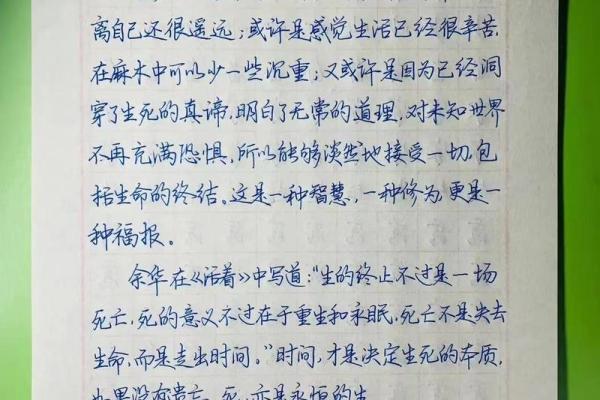 离自己还很遥远；或许是感觉生活已经很辛苦，
在麻木中可以少一些沉重；又或许是因为已经洞
穿了生死的真谛，明白了无常的道理，对未知世界
不再充满恐惧，所以能够淡然地接受一切，包
括生命的终结。这是一种智慧，一种修为，更是一
种福报。
余华在《活着》中写道："生的终止不过是一场
死亡，死的意义不过在于重生和永眠，死亡不是失去
生命，而是走出时间。"时间，才是决定生死的本质，
如果没有
死，亦是永恒的生